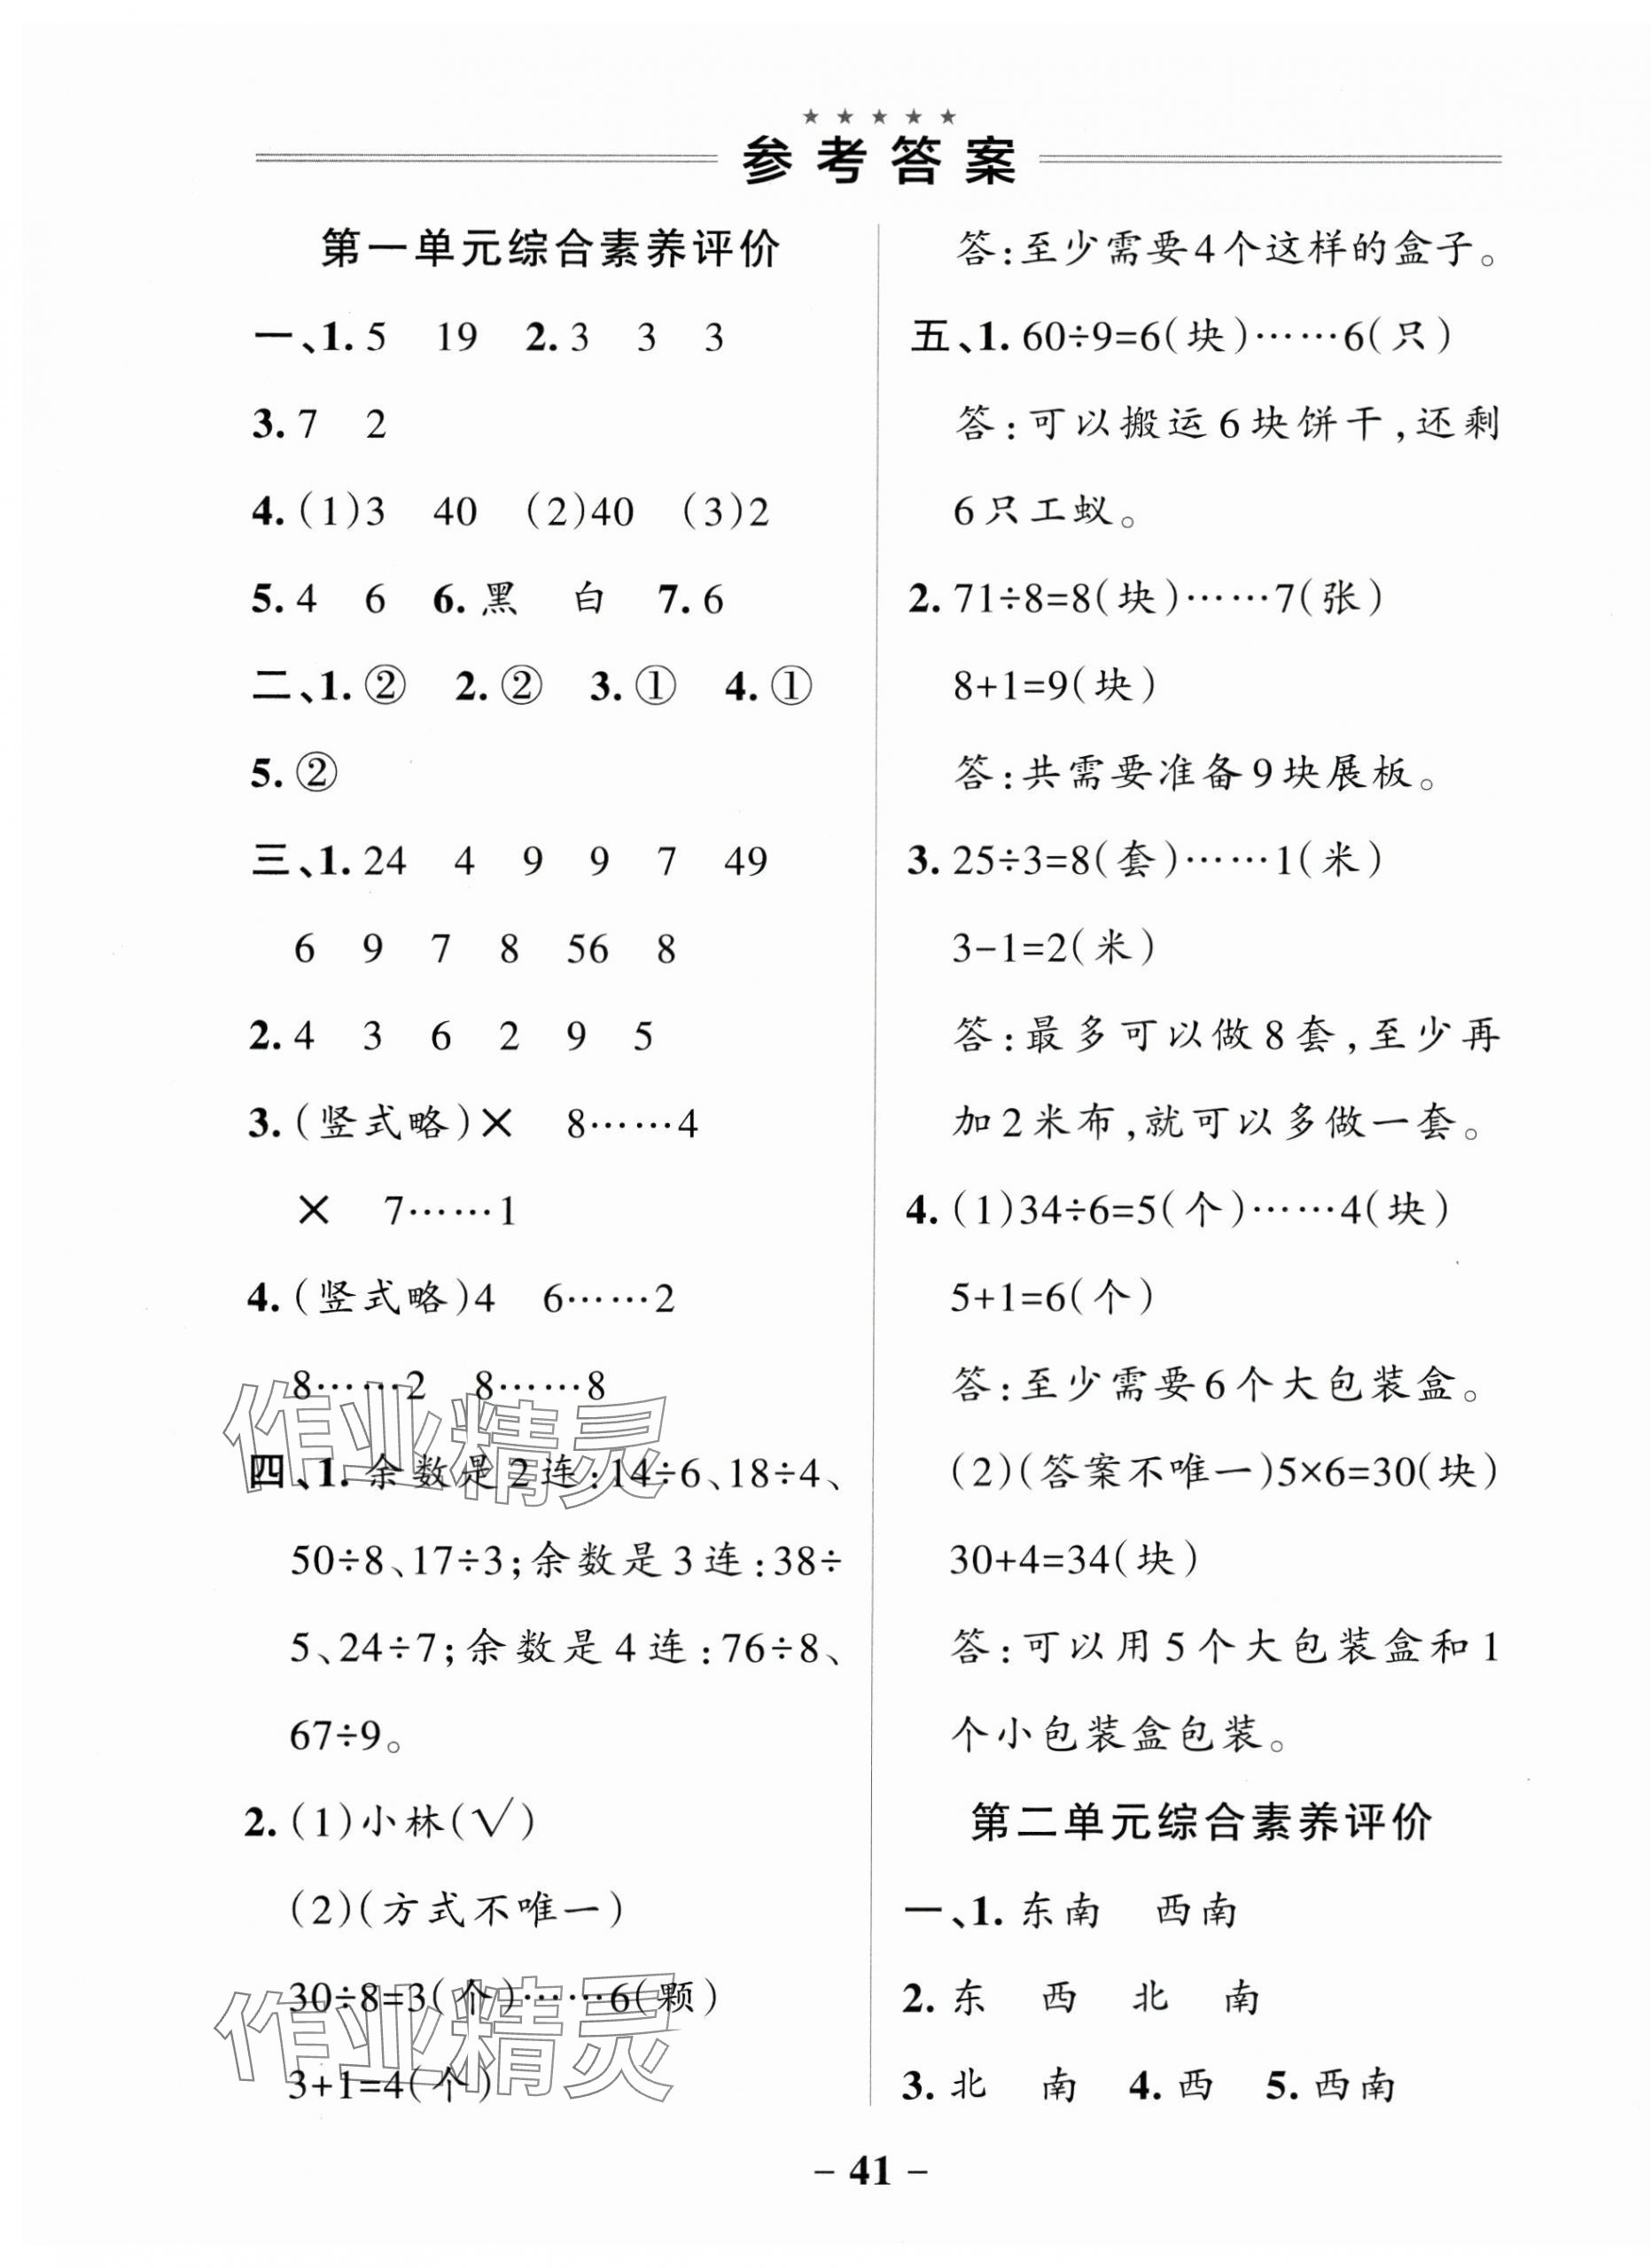 ★ ★ ★ ★ ★
参考答案
第一单元综合素养评价
一、1. 5 19 2. 3 3 3
3. 7 2
4. (1)3 40 (2)40 (3)2
5. 4 6 6. 黑 白 7. 6
二、1. ② 2. ② 3. ① 4. ①
5. ②
三、1. 24 4 9 9 7 49
6 9 7 8 56 8
2. 4 3 6 2 9 5
3. (竖式略)× 8……4
× 7……1
4. (竖式略)4 6……2
8……2 8……8
四、1. 余数是2连:14÷6、18÷4、
50÷8、17÷3;余数是3连:38÷
5、24÷7;余数是4连:76÷8、
67÷9。
2. (1)小林(√)
(2)(方式不唯一)
30÷8=3(个)……6(颗)
3+1=4(个)
答:至少需要4个这样的盒子。
五、1. 60÷9=6(块)……6(只)
答:可以搬运6块饼干,还剩
6只工蚁。
2. 71÷8=8(块)……7(张)
8+1=9(块)
答:共需要准备9块展板。
3. 25÷3=8(套)……1(米)
3-1=2(米)
答:最多可以做8套,至少再
加2米布,就可以多做一套。
4. (1)34÷6=5(个)……4(块)
5+1=6(个)
答:至少需要6个大包装盒。
(2)(答案不唯一)5×6=30(块)
30+4=34(块)
答:可以用5个大包装盒和1
个小包装盒包装。
第二单元综合素养评价
一、1. 东南 西南
2. 东 西 北 南
3. 北 南 4. 西 5. 西南
作业精灵
作业精灵
- 41 -